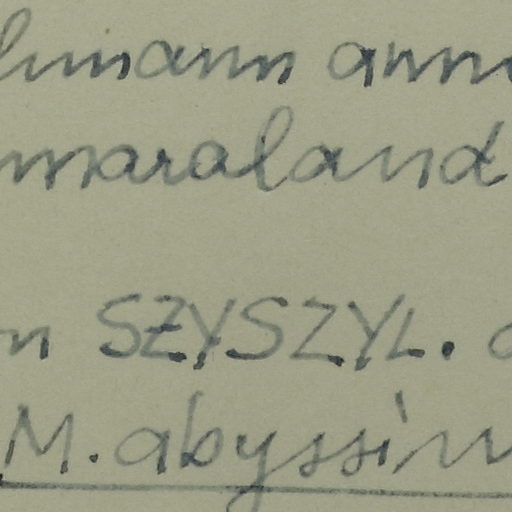 hmann ann
maraland
n SZYSZYL.
M. abyssin